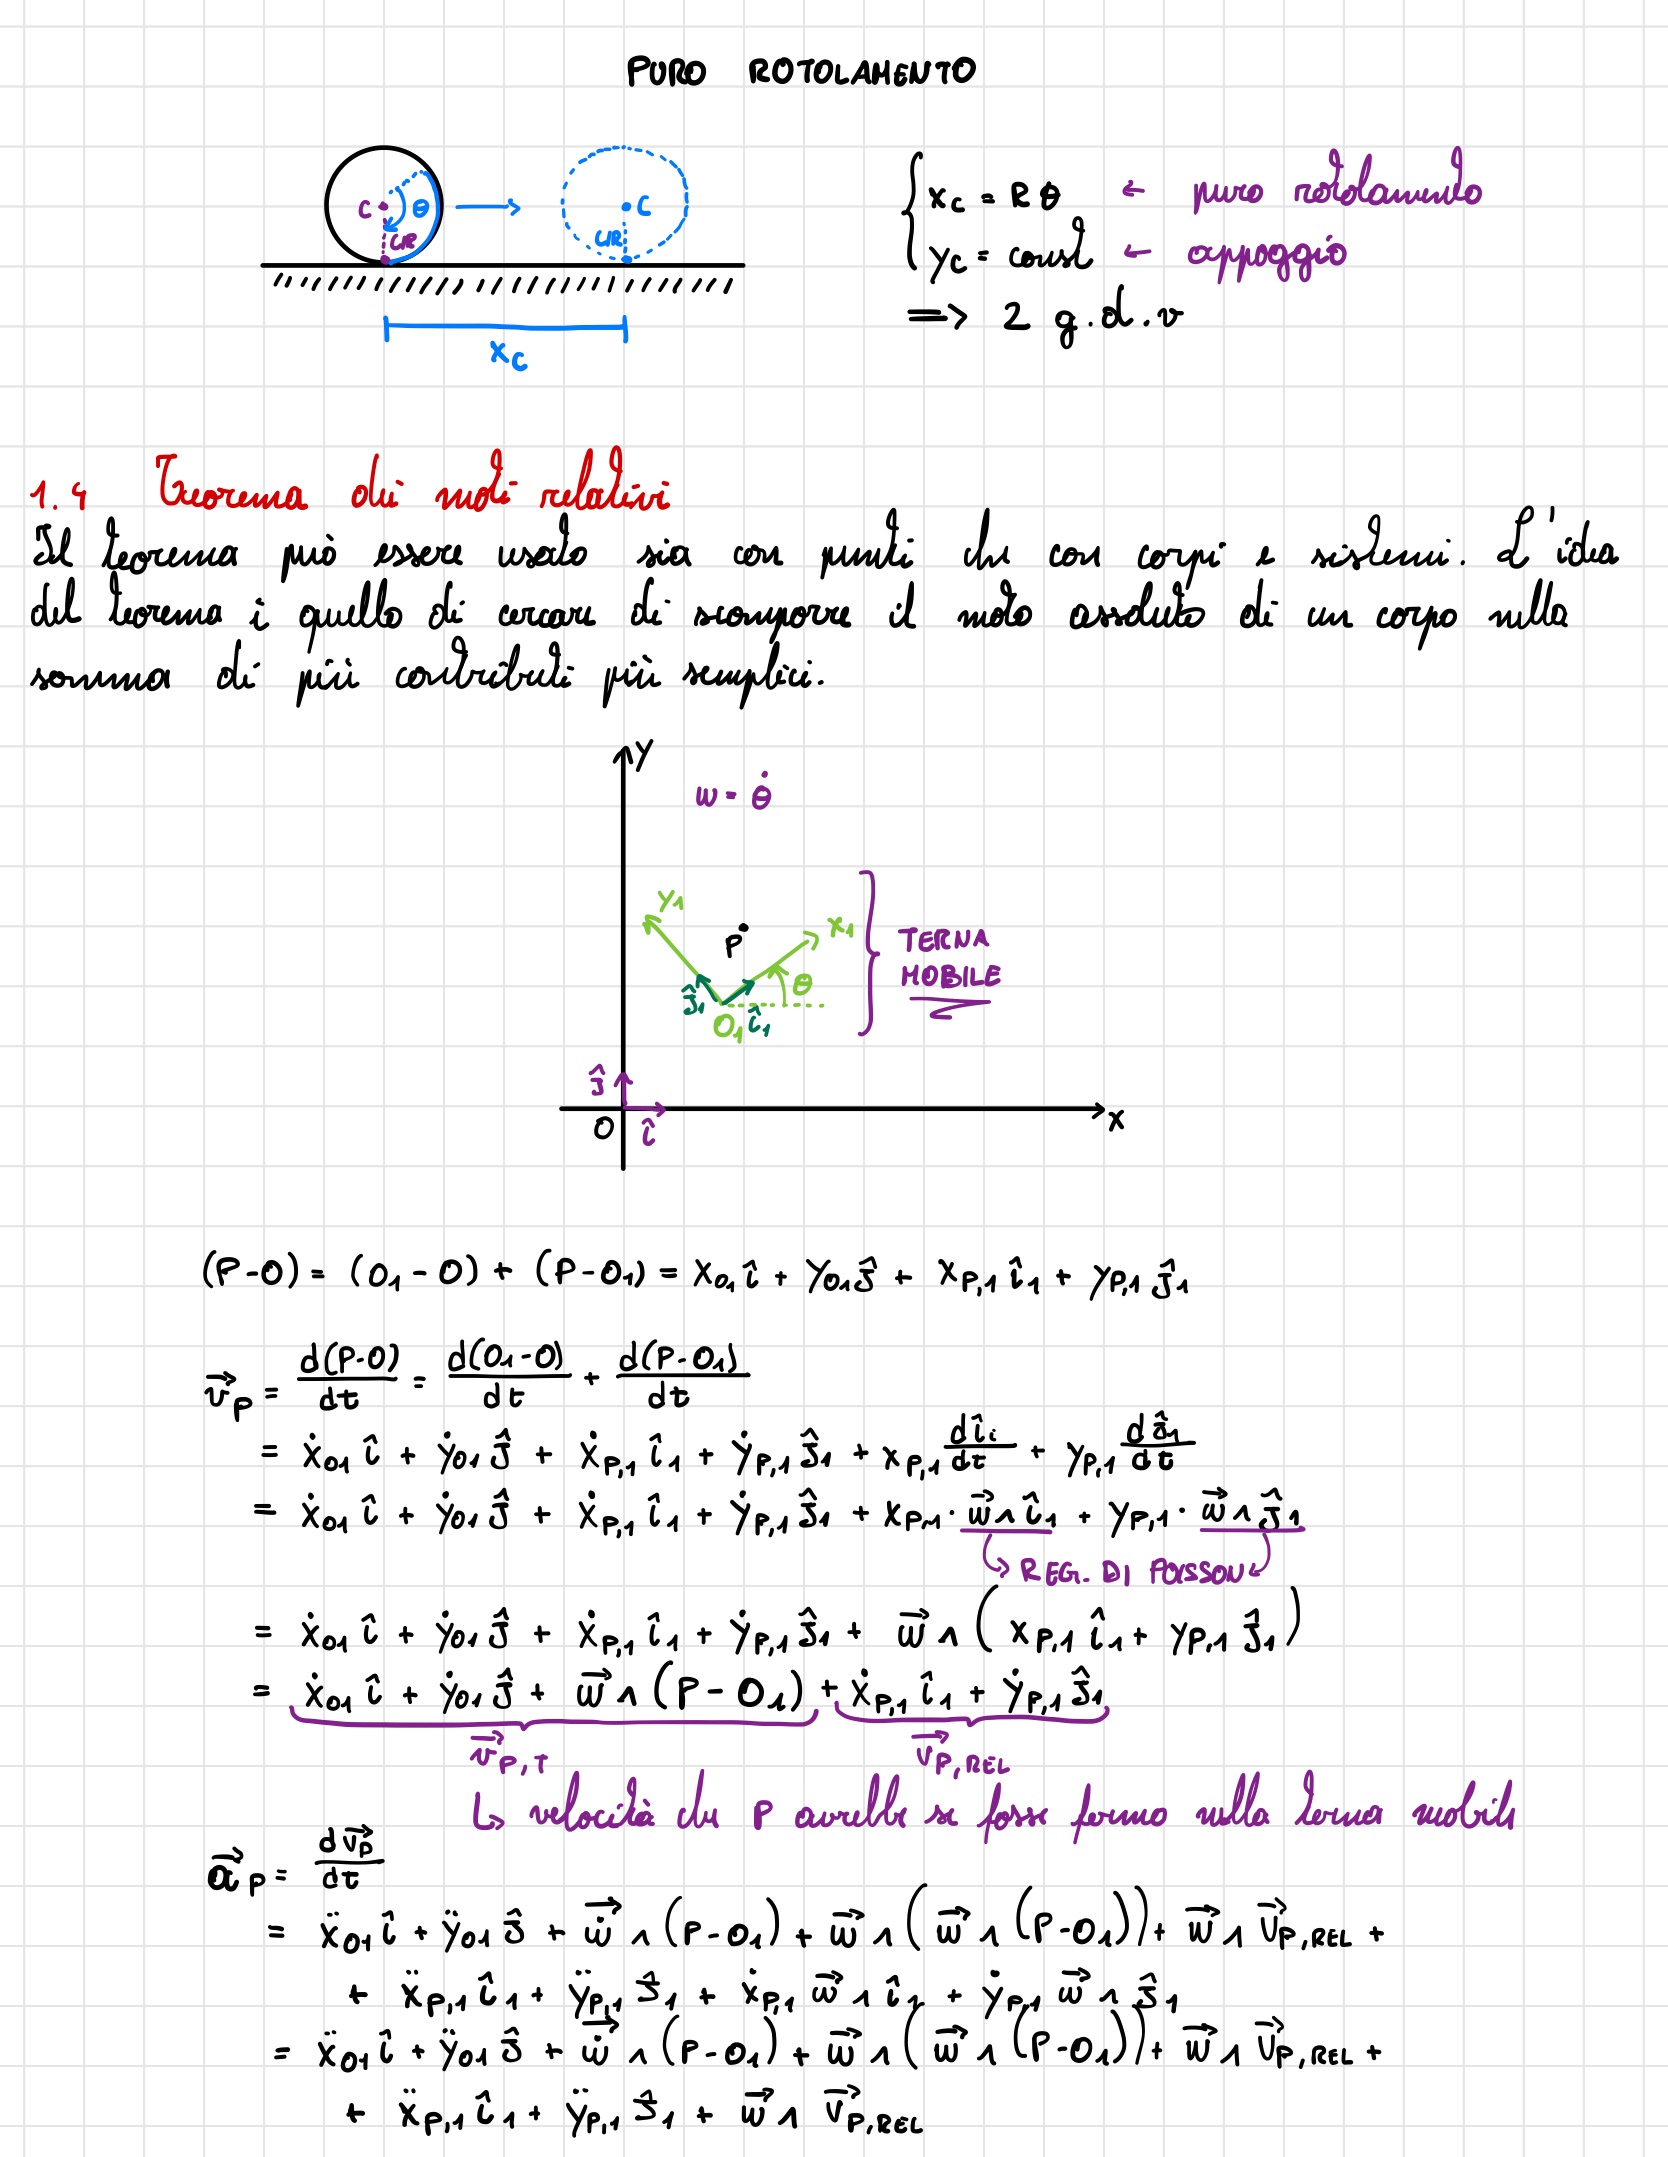 PURO ROTOLAMENTO
C θ CIR
C CIR
x_C
{ x_C = Rθ ← puro rotolamento
y_C = cost ← appoggio
=> 2 g.d.v
1.4 Teorema dei moti relativi
Il teorema può essere usato sia con punti che con corpi e sistemi. L'idea
del teorema è quello di cercare di scomporre il moto assoluto di un corpo nella
somma di più contributi più semplici.
y
w = θ̇
y₁
P
x₁
TERNA
MOBILE
θ
ĵ₁
O₁ î₁
ĵ
O î x
(P-O) = (O₁-O) + (P-O₁) = x_O1 î + y_O1 ĵ + x_P,1 î₁ + y_P,1 ĵ₁
v⃗_P = d(P-O)/dt = d(O₁-O)/dt + d(P-O₁)/dt
= ẋ_O1 î + ẏ_O1 ĵ + ẋ_P,1 î₁ + ẏ_P,1 ĵ₁ + x_P,1 dî₁/dt + y_P,1 dĵ₁/dt
= ẋ_O1 î + ẏ_O1 ĵ + ẋ_P,1 î₁ + ẏ_P,1 ĵ₁ + x_P,1 · w⃗ ∧ î₁ + y_P,1 · w⃗ ∧ ĵ₁
REG. DI POISSON
= ẋ_O1 î + ẏ_O1 ĵ + ẋ_P,1 î₁ + ẏ_P,1 ĵ₁ + w⃗ ∧ (x_P,1 î₁ + y_P,1 ĵ₁)
= ẋ_O1 î + ẏ_O1 ĵ + w⃗ ∧ (P-O₁) + ẋ_P,1 î₁ + ẏ_P,1 ĵ₁
v⃗_P,T v⃗_P,REL
↳ velocità che P avrebbe se fosse fermo nella terna mobile
a⃗_P = dv⃗_P/dt
= ẍ_O1 î + ÿ_O1 ĵ + ẇ⃗ ∧ (P-O₁) + w⃗ ∧ (w⃗ ∧ (P-O₁)) + w⃗ ∧ v⃗_P,REL +
+ ẍ_P,1 î₁ + ÿ_P,1 ĵ₁ + ẋ_P,1 w⃗ ∧ î₁ + ẏ_P,1 w⃗ ∧ ĵ₁
= ẍ_O1 î + ÿ_O1 ĵ + ẇ⃗ ∧ (P-O₁) + w⃗ ∧ (w⃗ ∧ (P-O₁)) + w⃗ ∧ v⃗_P,REL +
+ ẍ_P,1 î₁ + ÿ_P,1 ĵ₁ + w⃗ ∧ v⃗_P,REL